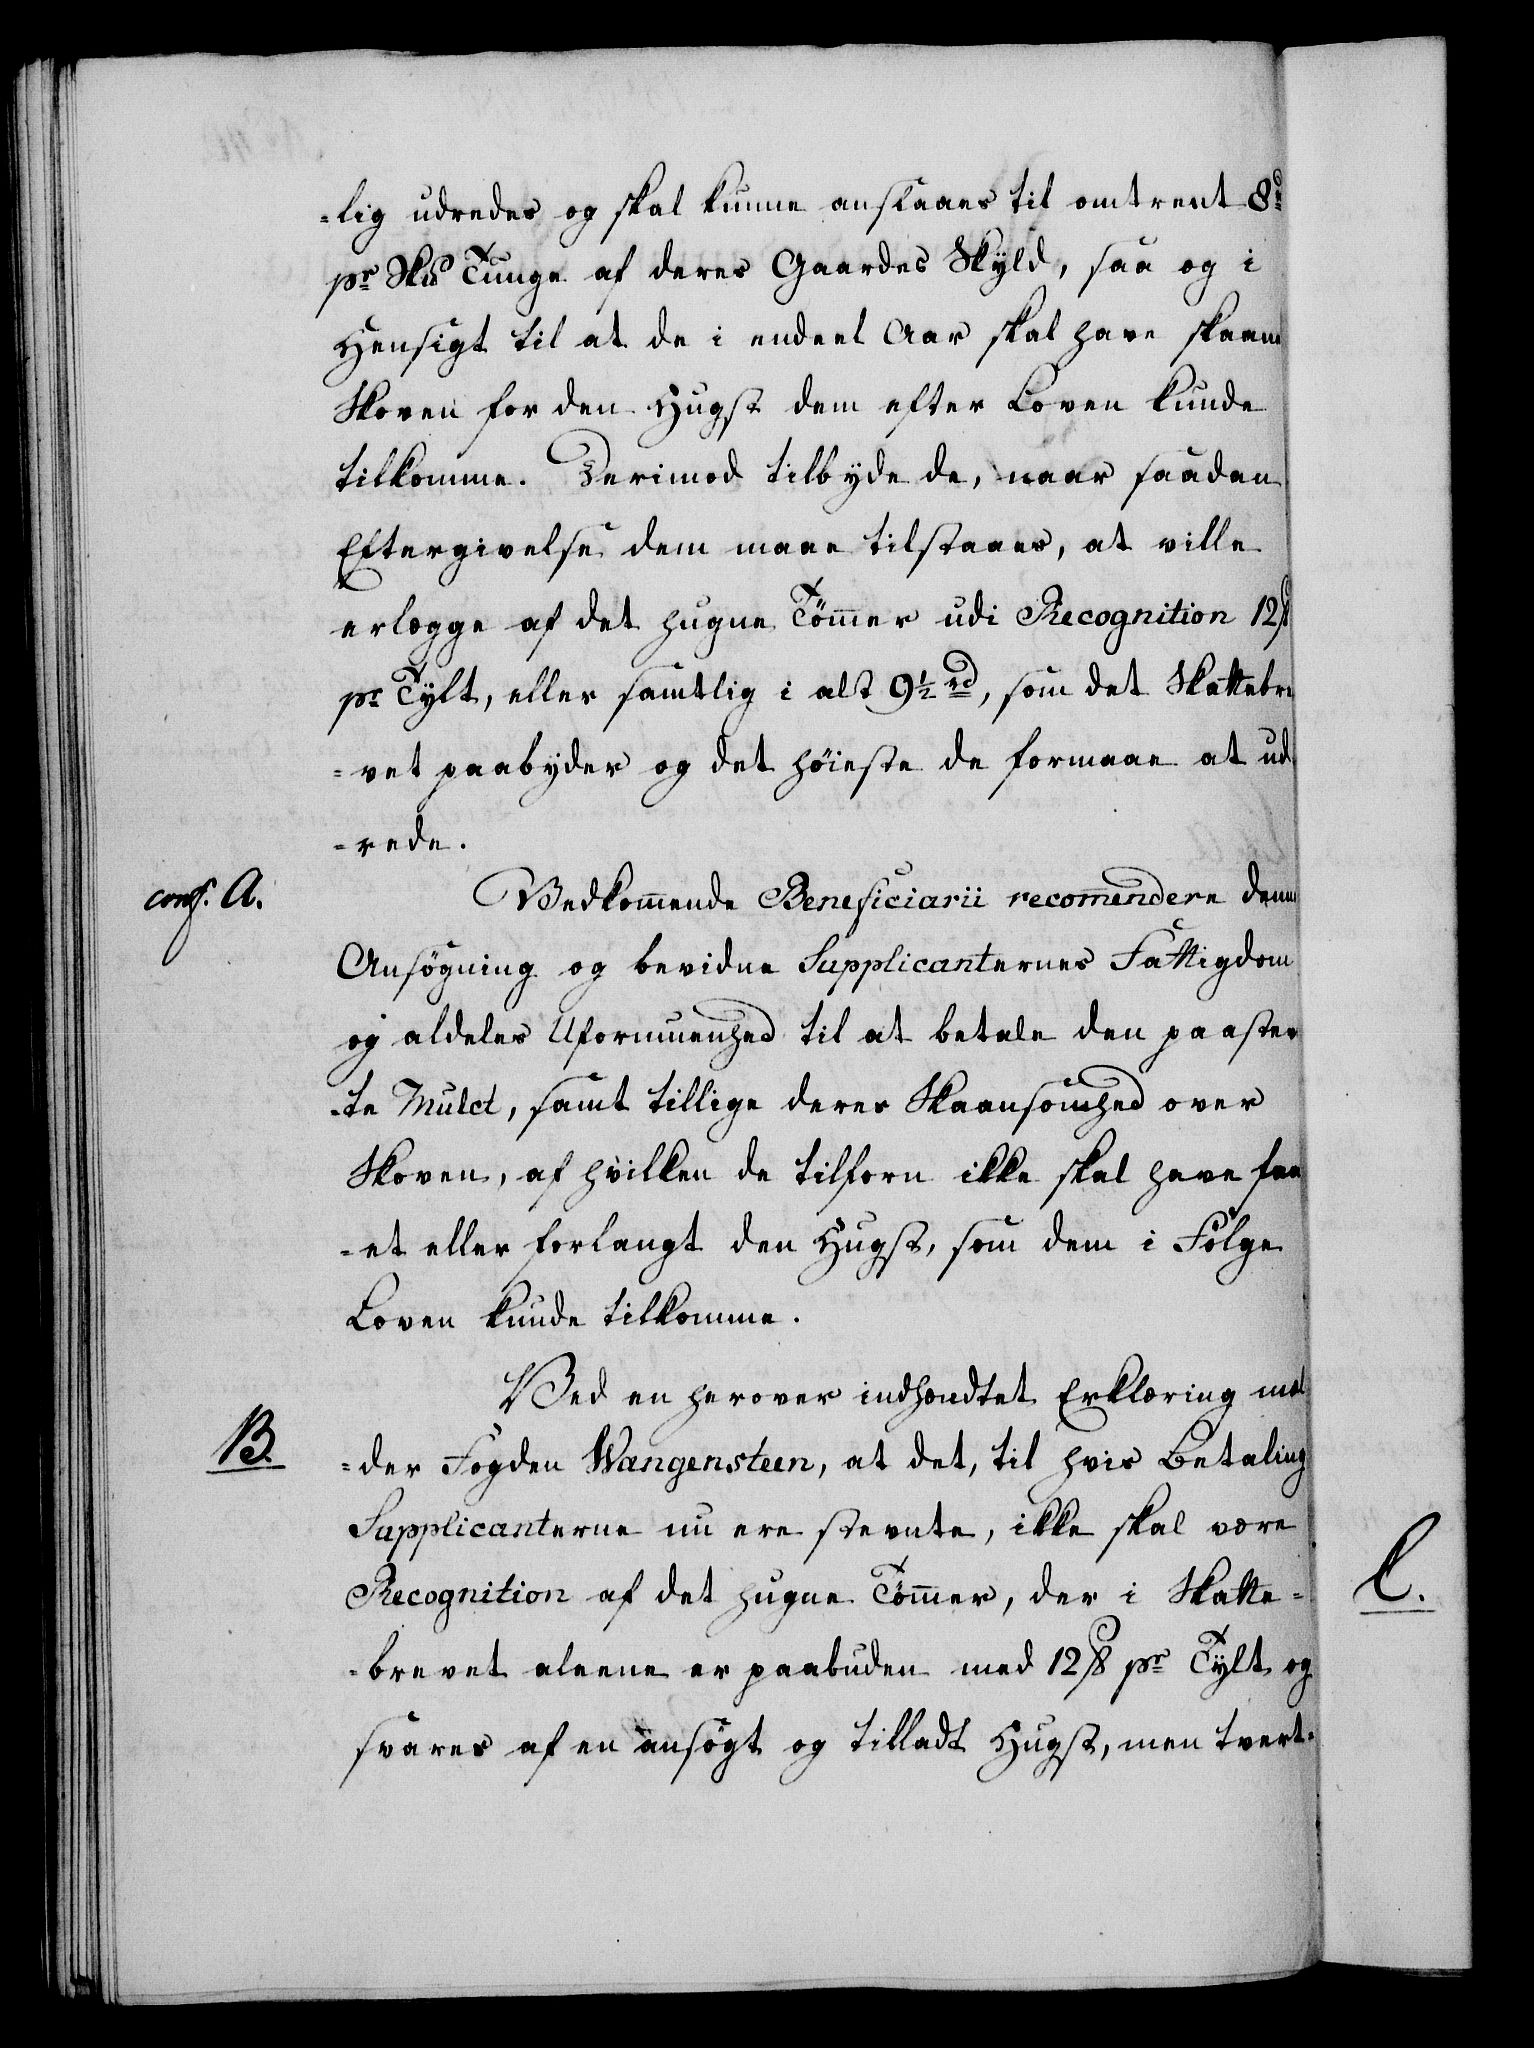 -lig udredes og skal kunne anslaaes til omtrent 8 rd
pr Skd Tunge af deres Gaardes Skyld, saa og i
Hensigt til at de i endeel Aar skal have skaane
Skoven for den Hugst dem efter Loven kunde
tilkomme. Derimod tilbyde de, naar saadan
Eftergivelse dem maae tilstaaes, at ville
erlægge af det hugne Tömer udi Recognition 12 ß
pr Tylt, eller samtlig i alt 9½ rd, som det Skattebre
-vet paabyder og det höieste de formaae at ud
-rede.
conf. A.
Vedkomende Beneficiarii recomendere denne
Ansögning og bevidne Supplicanternes Fattigdom
og aldeles Uformuenhed til at betale den paasten
-te Mulct, samt tillige deres Skaansomhed over
Skoven, af hvilken de tilforn ikke skal have faa
-et eller forlangt den Hugst, som dem i Fölge
Loven kunde tilkomme.
Ved en herover indhændtet Erklæring mel
B.
-der Fogden Wangensteen, at det, til hvis Betaling
Supplicanterne nu ere stevnte, ikke skal være
Recognition af det hugne Tömer, der i Skatte-
C.
-brevet aleene er paabuden med 12 ß pr Tylt og
svares af en ansögt og tilladt Hugst, men tvert-